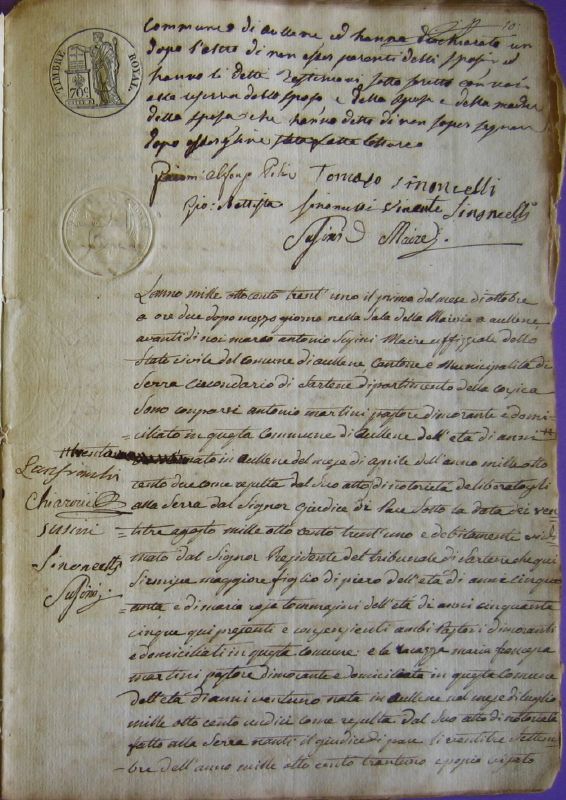 TIMBRE ROYAL
70c
10
Commune di aullene ed hanno dichiarato un
dopo l'altro di non esser parenti delli sposi ed
hanno li detti testimonj sotto scritto con noi
alla reserva dello sposo e della sposa e della madre
della sposa che hanno detto di non saper segnare
dopo stata fatta lettura
Tomaso Sinoncelli
Gio: Battista vincente Sinoncelli
Susini Maire
L'anno mille otto cento trent'uno il primo del mese di ottobre
a ore due dopo mezzo giorno nella Sala della Mairia a aullene
avanti di noi marco antonio Susini Maire uffiziale dello
Stato civile del comune di aullene Cantone e Municipalità di
Serra circondario di Sartene dipartimento della Corsica
Sono comparsi antonio martini pastore dimorante e domi
=ciliato in questa Commune di aullene dell'età di anni
nato in aullene del mese di aprile dell'anno mille otto
cento due come risulta dal suo atto di notorietà deliberatogli
alla Serra dal Signor Giudice di Pace Sotto la data dei ven
=titre agosto mille otto cento trent'uno e debitamente
=mato dal Signor Presidente del tribunale di Sartene
figlio maggiore figlio di piero dell'età di anni cinqu
=anta e di maria rosa tommasini dell'età di anni cinquanta
cinque qui presenti e consenzienti ambi pastori dimoranti
e domiciliati in questa comune: e la ragazza maria
martini pastore dimorante e domiciliata in questa Comune
dell'età di anni ventuno nata in aullene nel mese di luglio
mille otto cento undici come risulta dal suo atto di notorietà
fatto alla Serra nanti il giudice di pace li ventitre Settem
=bre dell'anno mille otto cento trentuno e poscia vistato
trenta
Lanfranchi
Chiaroni
susini
Sinoncelli
Susini